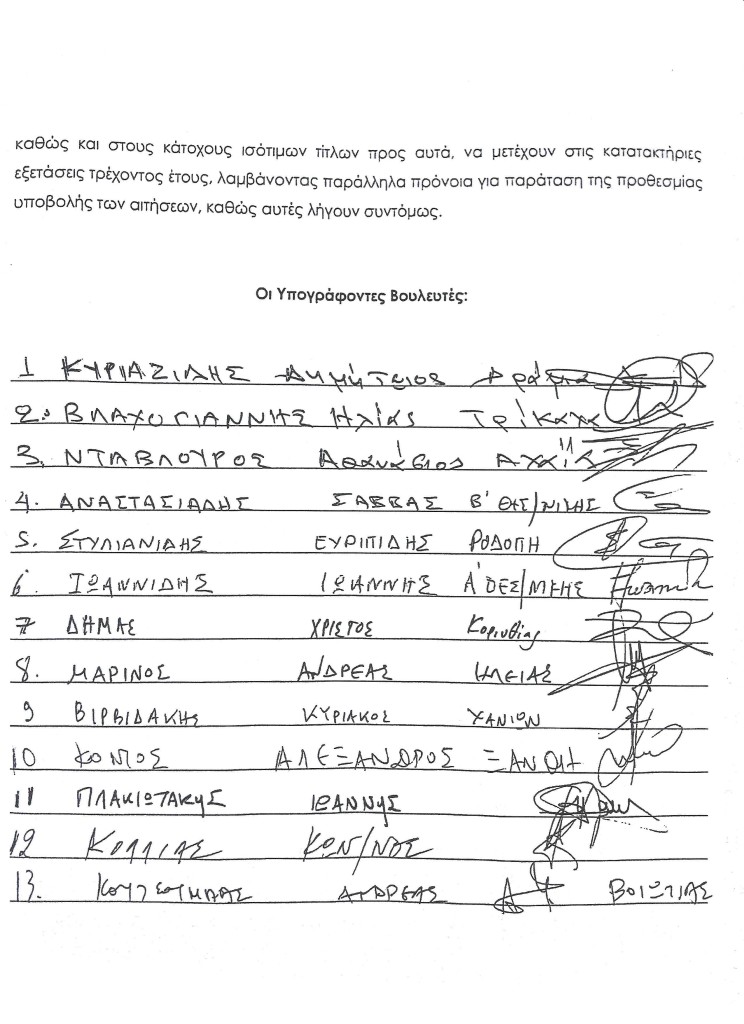 καθώς και στους κάτοχους ισότιμων τίτλων προς αυτά, να μετέχουν στις κατατακτήριες
εξετάσεις τρέχοντος έτους, λαμβάνοντας παράλληλα πρόνοια για παράταση της προθεσμίας
υποβολής των αιτήσεων, καθώς αυτές λήγουν συντόμως.
Οι Υπογράφοντες Βουλευτές:
1 ΚΥΡΙΑΖΙΔΗΣ Δημήτριος Δράμα
2. ΒΛΑΧΟΓΙΑΝΝΗΣ Ηλίας Τρίκαλα
3. ΝΤΑΒΛΟΥΡΟΣ Αθανάσιος Αχαΐα
4. ΑΝΑΣΤΑΣΙΑΔΗΣ ΣΑΒΒΑΣ Β' ΘΕΣ/ΝΙΚΗΣ
5. ΣΤΥΛΙΑΝΙΔΗΣ ΕΥΡΙΠΙΔΗΣ ΡΟΔΟΠΗ
6. ΙΩΑΝΝΙΔΗΣ ΙΩΑΝΝΗΣ Α' ΘΕΣ/ΝΙΚΗΣ
7 ΔΗΜΑΣ ΧΡΙΣΤΟΣ Κορινθίας
8. ΜΑΡΙΝΟΣ ΑΝΔΡΕΑΣ ΗΛΕΙΑΣ
9 ΒΙΡΒΙΔΑΚΗΣ ΚΥΡΙΑΚΟΣ ΧΑΝΙΩΝ
10 ΚΟΝΤΟΣ ΑΛΕΞΑΝΔΡΟΣ ΞΑΝΘΗ
11 ΠΛΑΚΙΩΤΑΚΗΣ ΙΩΑΝΝΗΣ
12 ΚΟΛΛΙΑΣ ΚΩΝ/ΝΟΣ
13. ΚΟΥΤΣΟΥΜΠΑΣ ΑΝΔΡΕΑΣ ΒΟΙΩΤΙΑΣ